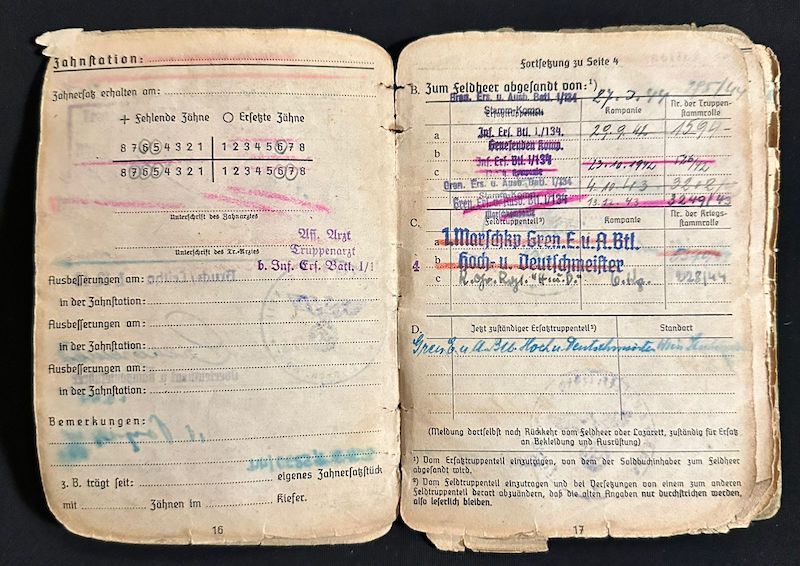 Zahnstation:
Zahnersatz erhalten am:
+ Fehlende Zähne ○ Ersetzte Zähne
8 7 6 5 4 3 2 1 | 1 2 3 4 5 6 7 8
8 7 6 5 4 3 2 1 | 1 2 3 4 5 6 7 8
Unterschrift des Zahnarztes
Unterschrift des Tr.-Arztes
Ass. Arzt
Truppenarzt
b. Inf. Ers. Batl. I/1
Ausbesserungen am:
in der Zahnstation:
Ausbesserungen am:
in der Zahnstation:
Ausbesserungen am:
in der Zahnstation:
Bemerkungen:
z. B. trägt seit: eigenes Zahnersatzstück
mit Zähnen im Kiefer.
16
Fortsetzung zu Seite 4
B. Zum Feldheer abgesandt von:¹)
Gren. Ers. u. Ausb. Batl. I/134 27.3.44 285/44
Kompanie Nr. der Truppenstammrolle
a Inf. Ers. Btl. I/134. 29.9.41 1594
Genesenden Komp.
b Inf. Ers. Btl. I/134 13.10.1942
Kompanie
c Gren. Ers. u. Ausb. Batl. I/134 4.10.43
Stamm-Komp.
Gren. Ers. u. Ausb. Btl. I/134 13.12.43 3249/43
Marschkomp.
C. Feldtruppenteil²) Kompanie Nr. der Kriegsstammrolle
a 1. Marschkp. Gren. E. u. A. Btl.
b Hoch- u. Deutschmeister
4
c 6. Kp. 228/44
D. Jetzt zuständiger Ersatztruppenteil²) Standort
Gren. E. u. A. Btl. Hoch u. Deutschmeister Wien
(Meldung dortselbst nach Rückkehr vom Feldheer oder Lazarett, zuständig für Ersatz
an Bekleidung und Ausrüstung)
¹) Vom Ersatztruppenteil einzutragen, von dem der Soldbuchinhaber zum Feldheer
abgesandt wird.
²) Vom Feldtruppenteil einzutragen und bei Versetzungen von einem zum anderen
Feldtruppenteil derart abzuändern, daß die alten Angaben nur durchstrichen werden,
also leserlich bleiben.
17